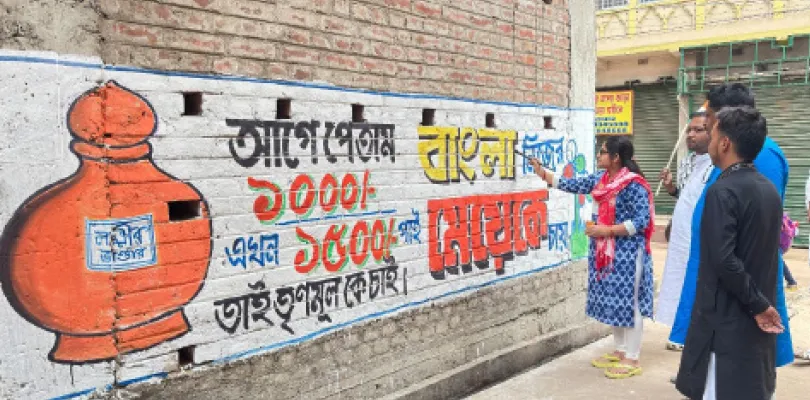 লক্ষ্মীর
ভাণ্ডার
আগে পেতাম
১০০০/-
এখন ১৫০০/- পাই
তাই তৃণমূল কে চাই।
বাংলা নিজের
মেয়েকে
চায়